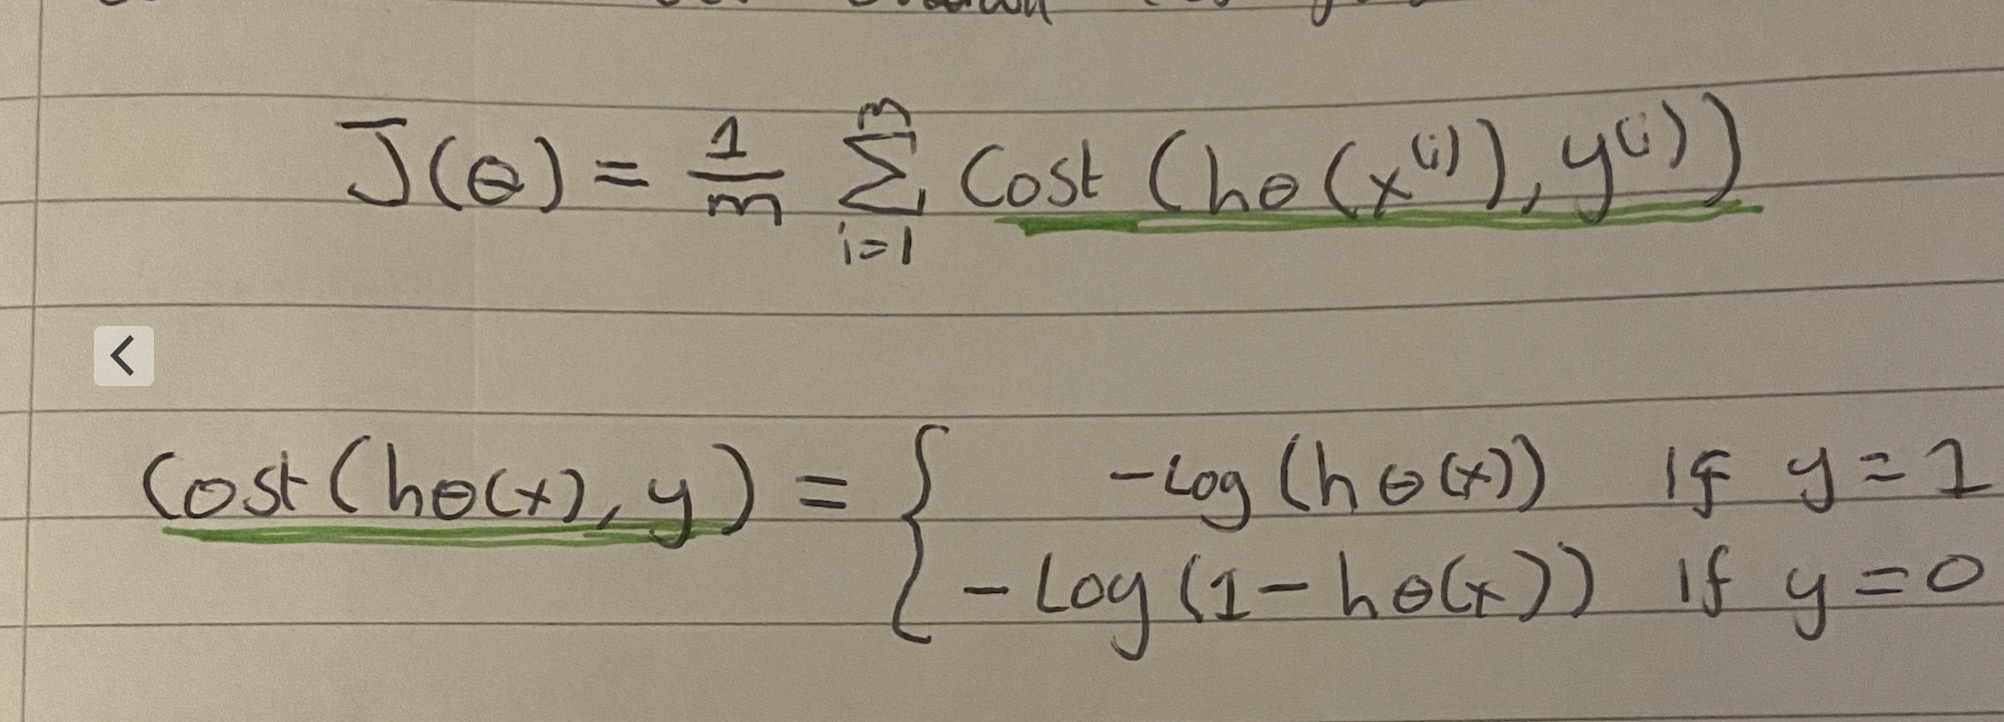 J(θ) = 1/m Σ_{i=1}^{m} Cost (hθ(x⁽ⁱ⁾), y⁽ⁱ⁾)
Cost(hθ(x), y) = { -Log (hθ(x)) If y = 1
- Log (1 - hθ(x)) If y = 0